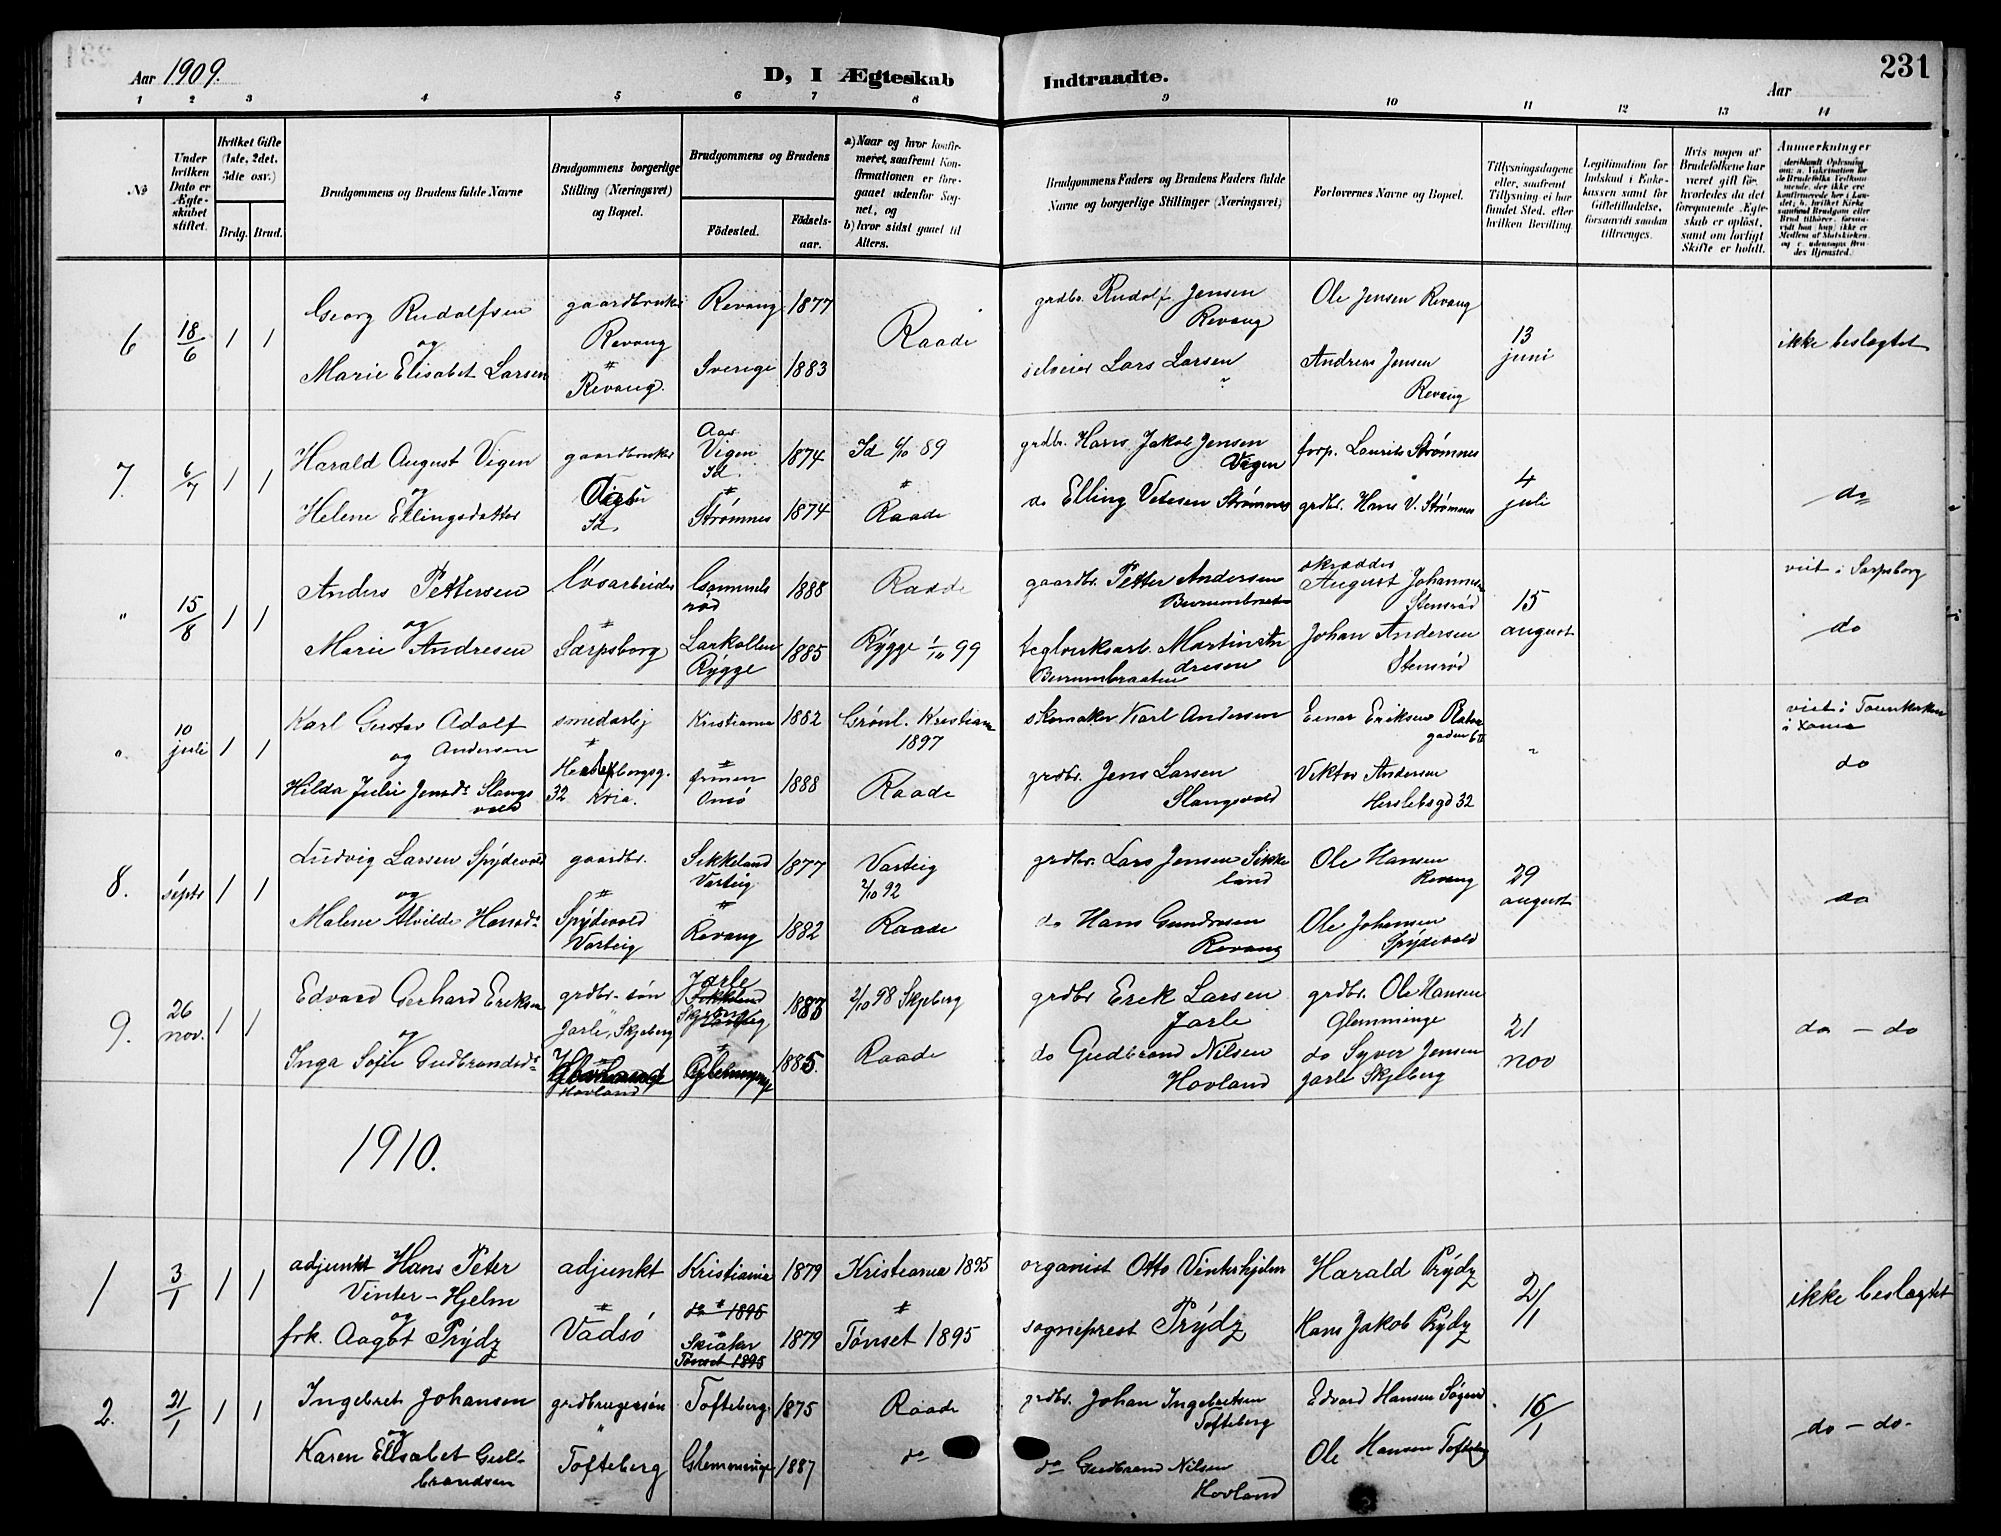 231
Aar 1909.
D, I Ægteskab Indtraadte.
Aar
1 2 3 4 5 6 7 8 9 10 11 12 13 14
No
Under hvilken Dato er Ægteskabet stiftet.
Hvilket Gifte (1ste, 2det, 3die osv.)
Brdg. Brud.
Brudgommens og Brudens fulde Navne
Brudgommens borgerlige Stilling (Næringsvei) og Bopæl.
Brudgommens og Brudens
Födested.
Födselsaar.
a) Naar og hvor konfirmeret, saafremt Konfirmationen er foregaaet udenfor Sognet, og
b) hvor sidst gaaet til Alters.
Brudgommens Faders og Brudens Faders fulde Navne og borgerlige Stillinger (Næringsvei)
Forlovernes Navne og Bopæl.
Tillysningsdagene eller, saafremt Tillysning ei har fundet Sted, efter hvilken Bevilling.
Legitimation for Indskud i Enkekassen samt for Giftetilladelse, forsaavidt saadan tiltrænges.
Hvis nogen af Brudefolkene har været gift før, hvorledes da det foregaaende Ægteskab er opløst, samt om lovligt Skifte er holdt.
Anmerkninger
6 18/6 1 1
Georg Rudolfsen
og
Marie Elisabet Larsen
gaardbruker
Revaug
"
Revaug.
Revaug 1877
Sverige 1883
Raade
grdbr. Rudolf Jensen
Revaug
selveier Lars Larsen
"
Ole Jensen Revaug
Andreas Jensen
Revaug
13
juni
ikke beslegtet
7. 6/7 1 1
Harald August Vigen
og
Helene Ellingsdatter
gaardbruker
Id.
Aas
Vigen
Id.
"
Strømnes
1874
1874
Id 6/10 89
"
Raade
grdbr. Hans Jakob Jensen
Vigen
do Elling Strømnes
forp. Laurits Strømnes
grdbr. Hans V. Strømnes
4
juli
do
" 15/8 1 1
Anders Pettersen
og
Marie Andresen
løsarbeider
"
Sarpsborg
1888
Larkollen
Rygge
1885
Raade
Rygge 1/10 99
gaardbr. Petter Andersen
teglverksarb. Martin An
dresen
skrædder
August Johannesen
Stensrød
Johan Andersen
Stensrød
15
august
viet i Sarpsborg
do
" 10
juli 1 1
Karl Gustav Adolf
og Andersen
Hilda Julie Jensdr Slangs
vold
smedarbj
"
32 Kria.
Kristiania 1882
"
Onsø
1888
Grønl. Kristiania
1897
Raade
skomaker Karl Andersen
grdbr. Jens Larsen
Slangsvold
Einar Eriksen
Viktor Andersen
Herslebsgd 32
"
do
8. 1
septr 1 1
Ludvig Larsen Spydevold
og
Malene Alvilde Hansdr
gaardbr.
"
Spydevold
Varteig
Sikkeland
Varteig
"
Revaug
1877
1882
Varteig
2/10 92
Raade
grdbr. Lars Jensen Sikke
land
do Hans Gundersen
Revaug
Ole Hansen
Revaug
Ole Johansen
Spydevold
29
august
do
9. 26
nov. 1 1
Edvard Gerhard Eriksen
og
Inga Sofie Gudbrandsdr
grdbr.-søn
Jarle, Skjeberg
Hovland
Jarle
Skjeberg
"
Glemminge
1883
1885.
2/10 98 Skjeberg
Raade
grdbr Erik Larsen
Jarle
do Gudbrand Nilsen
Hovland
grdbr. Ole Hansen
Glemminge
do Syver Jensen
Jarle Skjeberg
21
nov
do - do
1910.
1 3/1 1 1
adjunkt Hans Peter
Vinter-Hjelm
og
frk. Aagot Prydz
adjunkt
"
Vadsø
Kristiania 1879
do " 1895
Skiaker 1879
Tønset 1895
Kristiania 1895
"
Tønset 1895
organist Otto Vinterhjelm
sogneprest Prydz
Harald Prydz
Hans Jakob Prydz
2/1
ikke beslegtet
2. 21/1 1 1
Ingebret Johansen
og
Karen Elisabet Gul-
brandsen
grdbrugersøn
"
Tofteberg
Tofteberg. 1875
Glemminge 1887
Raade
do
grdbr. Johan Ingebretsen
Tofteberg
do Gudbrand Nilsen
Hovland
Edvard Hansen
Ole Hansen Tofteberg
16/1
do - do -